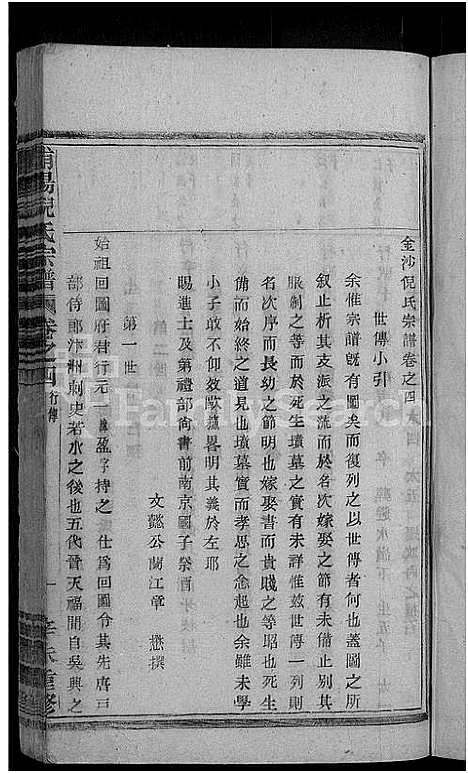 金沙倪氏宗譜卷之四
世傳小引
余惟宗譜旣有圖矣而復列之以世傳者何也蓋圖之所
叙止析其支派之流而於名次嫁娶之節有未備止別其
服制之等而於死生墳墓之實有未詳惟玆世傳一列則
名次序而長幼之節明也嫁娶書而貴賤之等昭也死生
備而始終之道見也墳墓實而孝思之念起也余雖未學
小子敢不仰效歐蘇畧明其義於左耶
賜進士及第禮部尙書前南京國子祭酒
文懿公蘭江章 懋撰
第一世
始祖回圖府君行元一諱盈字持之 仕爲回圖令其先唐戸
部侍郎汴洲刺史若水之後也五代晉天福間自吳興之
浦陽倪氏宗譜 卷之四 行傳
一
辛未重修
FamilySearch